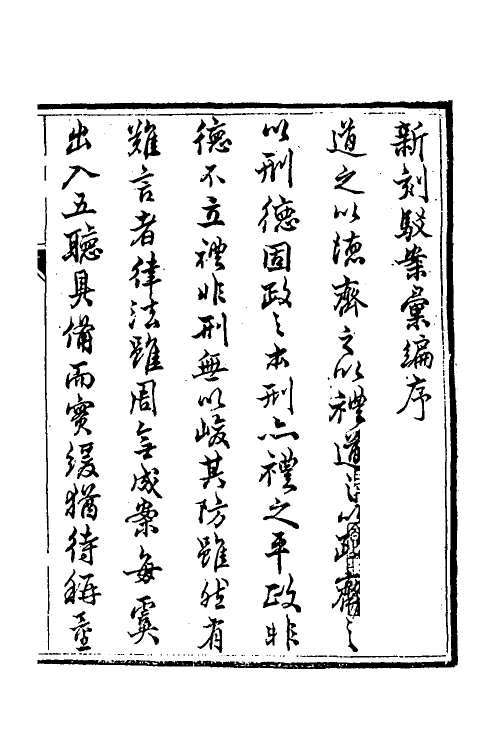 新刻駁案彙編序
道之以德齊之以禮道之以政齊之
以刑德固政之本刑亦禮之平政非
德不立禮非刑無以峻其防雖然有
難言者律法雖周無成案每虞
出入五聽具備而實緩猶待稱量